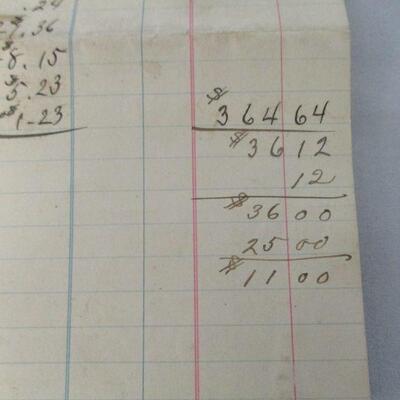 .24
7.36
8.15
$5.23
$1-23
$36464
$3612
12
$3600
2500
$1100